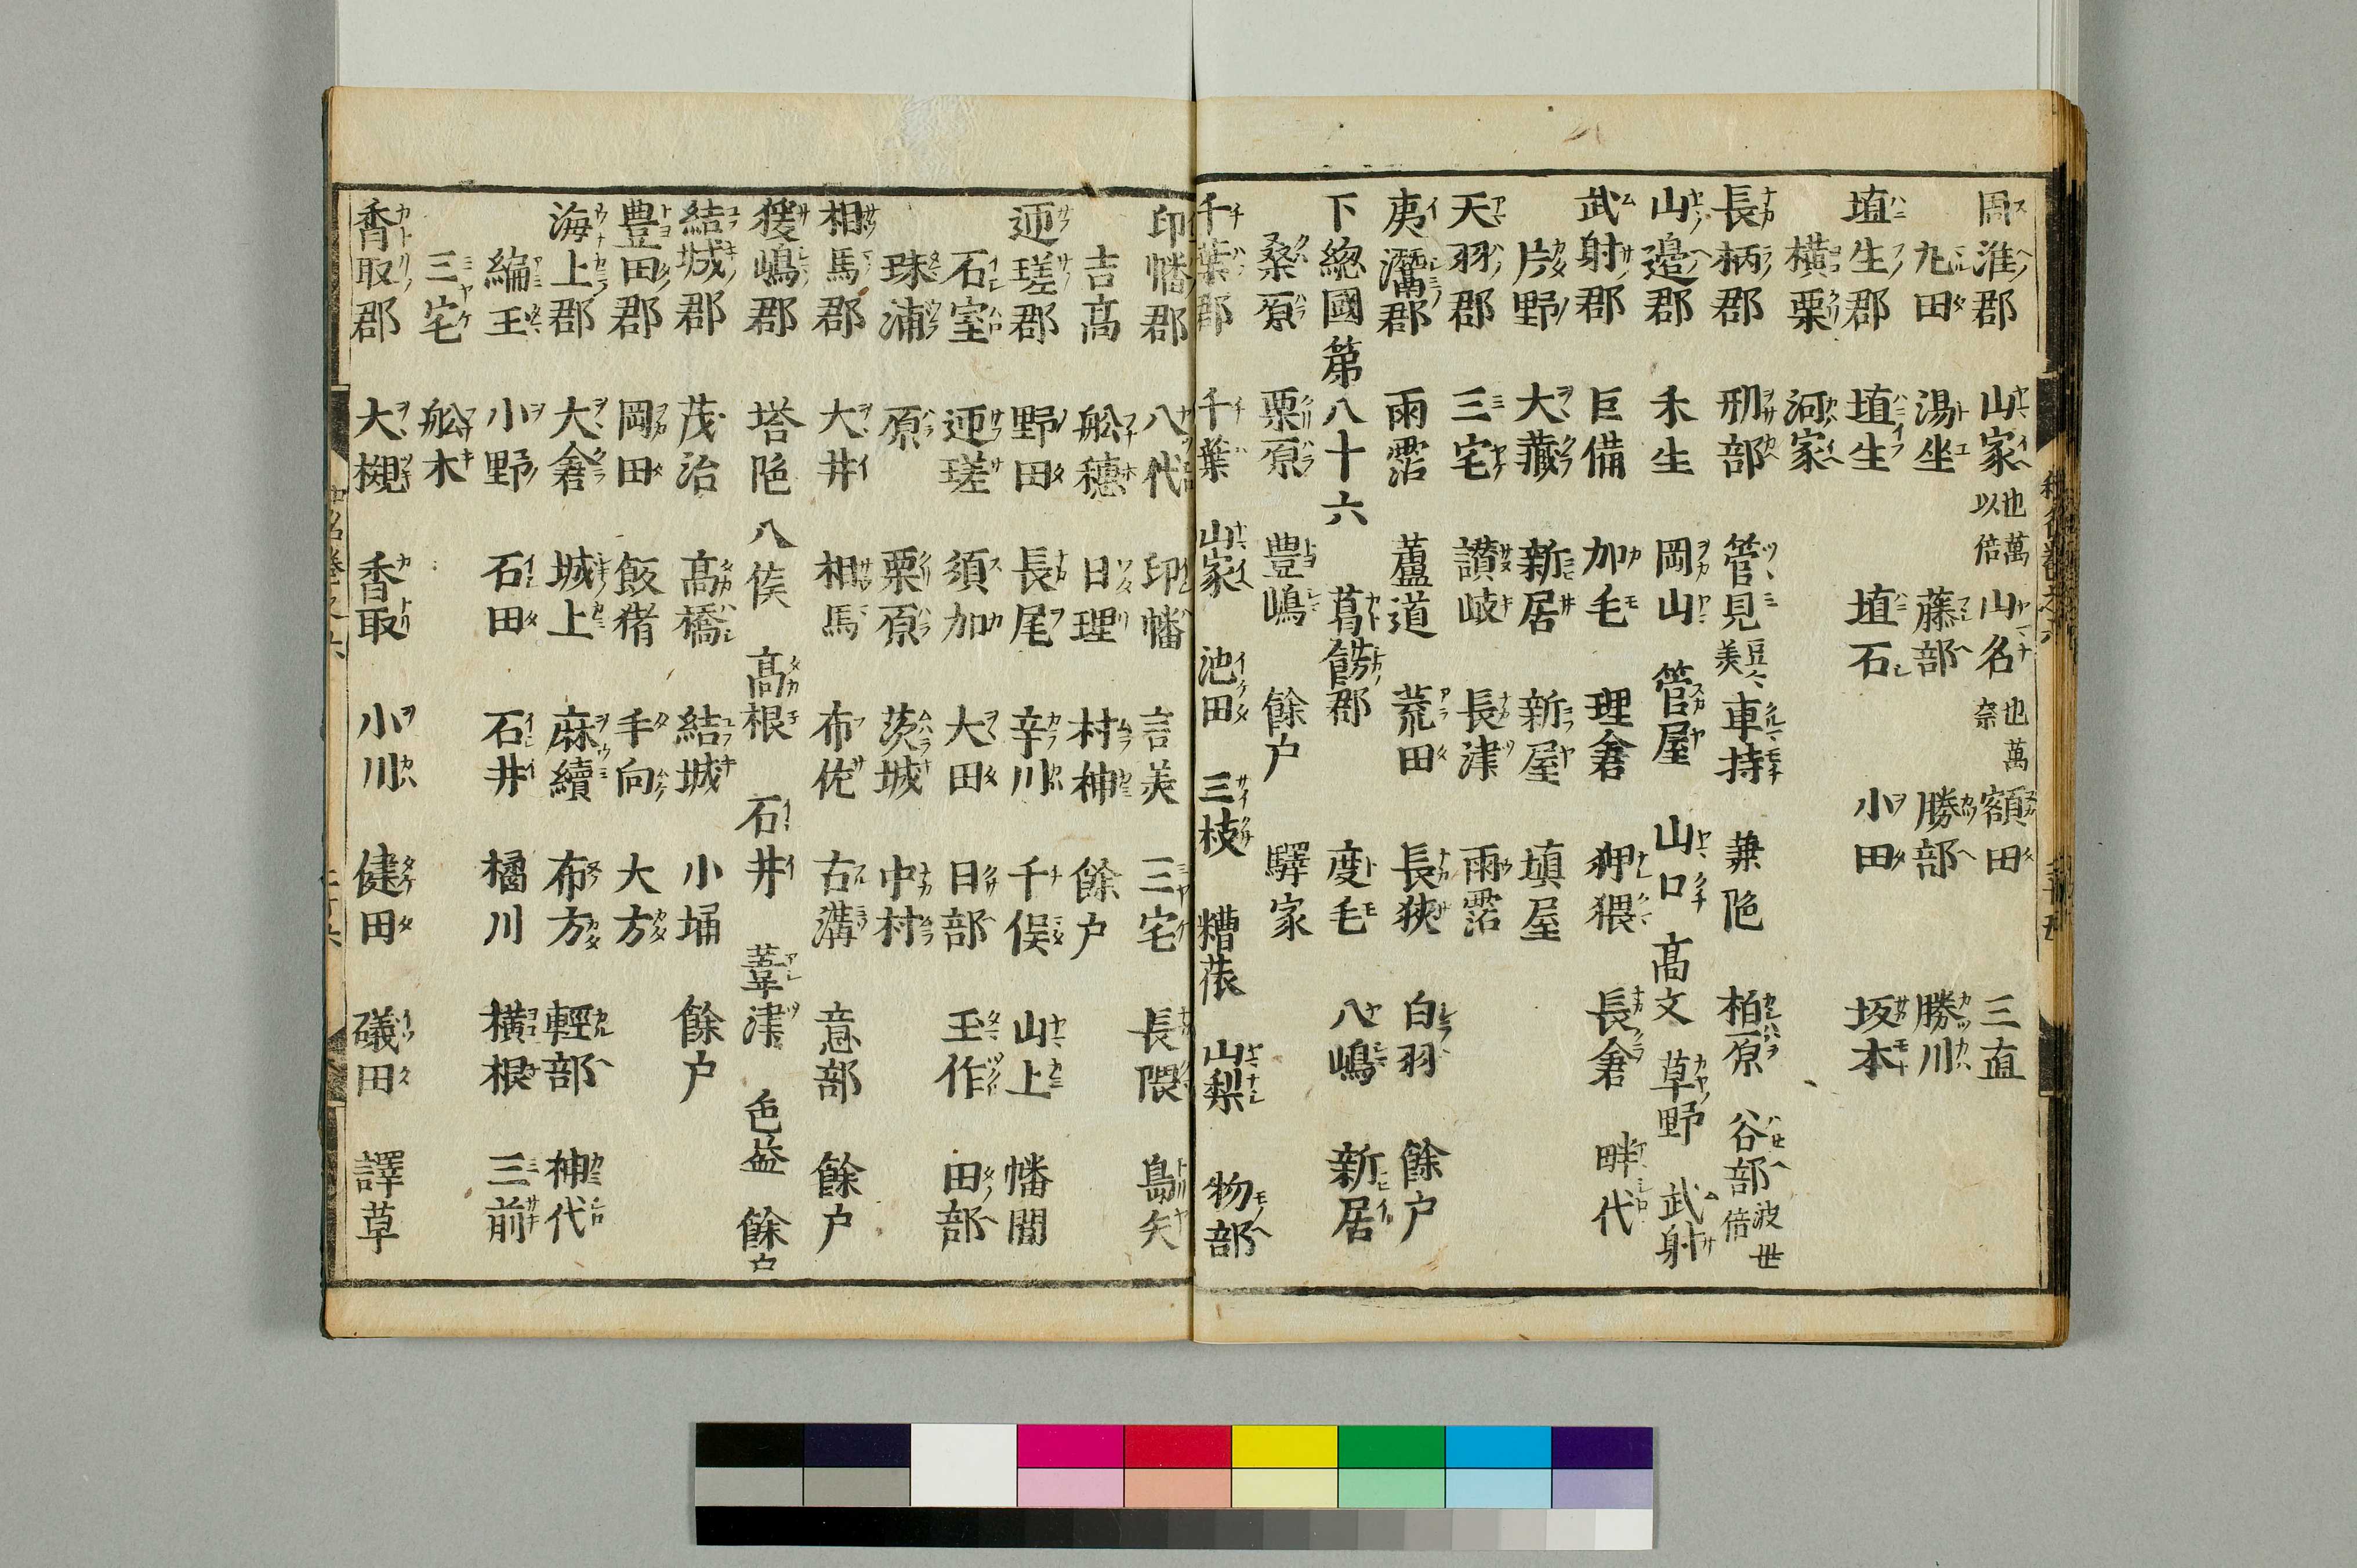 周淮郡 山家 也萬以倍 山名 也萬奈 額田 三直
九田 湯坐 藤部 勝部 勝川
埴生郡 埴生 埴石 小田 坂本
横栗 河家
長柄郡 刑部 管見 豆々美 車持 兼陁 柏原 谷部 波世倍
山邉郡 禾生 岡山 管屋 山口 高文 草野 武射
武射郡 巨備 加毛 理倉 狎猥 長倉 畔代
片野 大蔵 新居 新屋 填屋
天羽郡 三宅 讃岐 長津 雨霑
夷灊郡 雨霑 蘆道 荒田 長狹 白羽 餘户
下緫國第八十六 葛餝郡 度毛 八嶋 新居
桑原 栗原 豊嶋 餘户 驛家
千葉郡 千葉 山家 池田 三枝 糟莀 山梨 物部
印幡郡 八代 印幡 言美 三宅 長隈 島矢
吉高 舩穗 日理 村神 餘户
迊瑳郡 野田 長尾 辛川 千俣 山上 幡間
石室 迊瑳 須加 大田 日部 玉作 田部
珠浦 原 栗原 茨城 中村
相馬郡 大井 相馬 布佐 古溝 意部 餘户
猨嶋郡 塔陁 八俟 高根 石井 葦津 色益 餘户
結城郡 茂治 高橋 結城 小埇 餘户
豊田郡 岡田 飯猪 手向 大方
海上郡 大倉 城上 麻續 布方 輕部 神代
編玉 小野 石田 石井 橘川 横根 三前
三宅 舩木
香取郡 大槻 香取 小川 健田 礒田 譯草